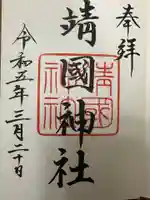 奉拝
靖國神社
靖國神社
令和五年三月二十日